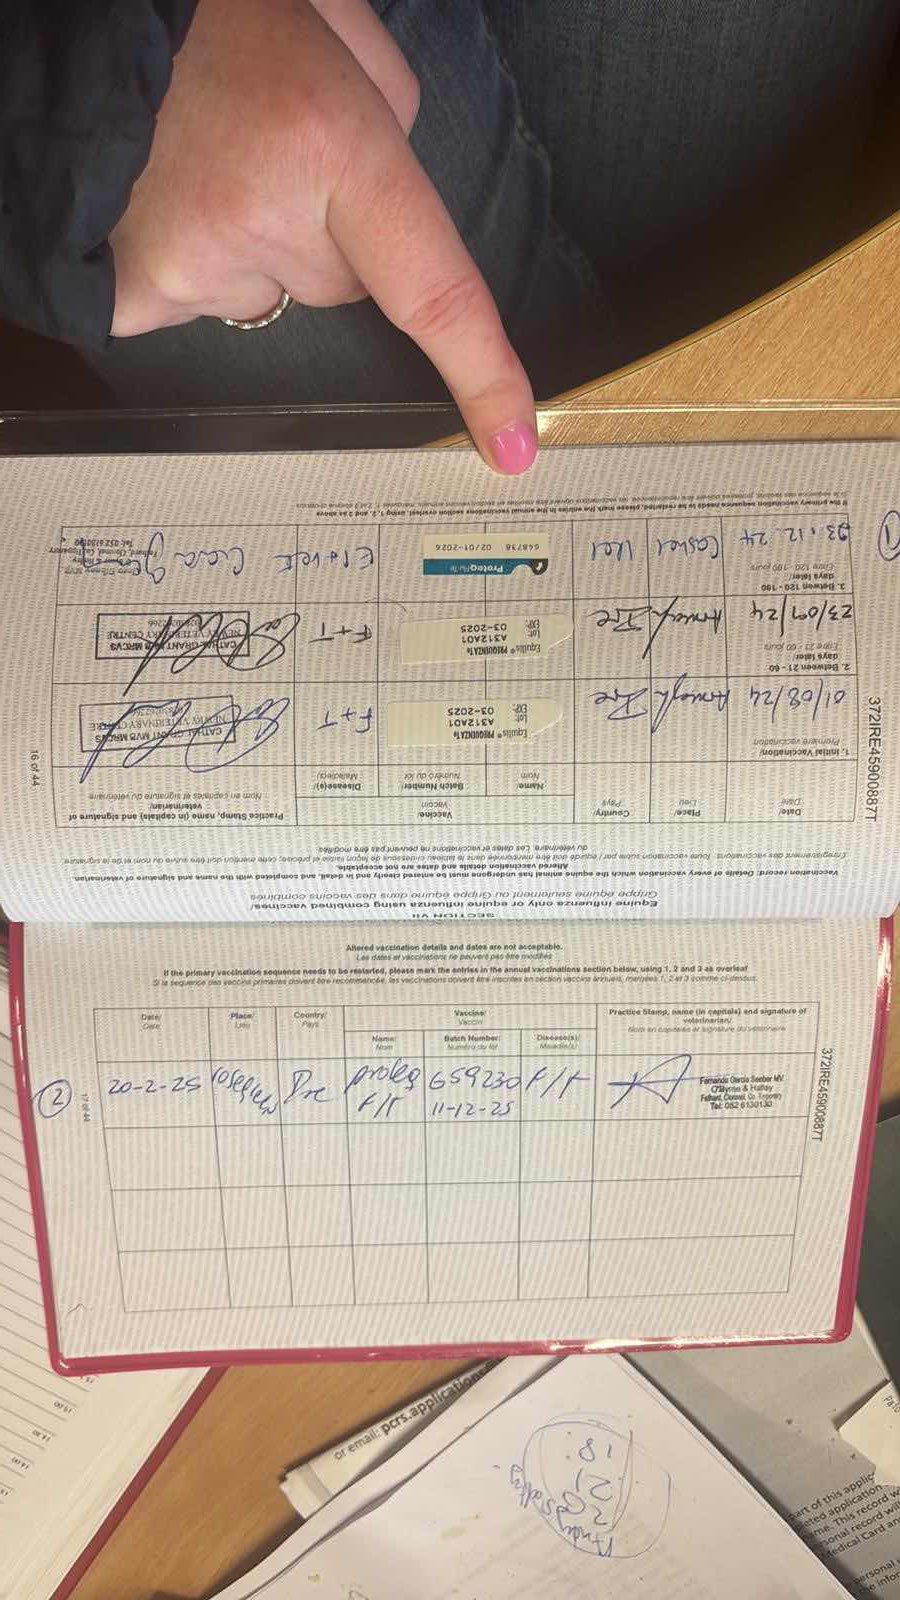 372IRE45900887T
16 of 44
SECTION VII
Equine influenza only or equine influenza using combined vaccines/
Grippe équine seulement ou Grippe équine dans des vaccins combinés
Vaccination record: Details of every vaccination which the equine animal has undergone must be entered clearly and in detail, and completed with the name and signature of veterinarian.
Altered vaccination details and dates are not acceptable.
du vétérinaire. Les dates et vaccinations ne peuvent pas être modifiés
Date/
Date
Place/
Lieu
Country/
Pays
Vaccine/
Vaccin
Name/
Nom
Batch Number/
Numéro du lot
Disease(s)/
Maladie(s)
Practice Stamp, name (in capitals) and signature of
veterinarian/
Nom en capitales et signature du vétérinaire
1. Initial Vaccination/
Première vaccination
01/08/24
Armagh
Ire
Equilis® PREQUENZA Te
Lot: A312A01
EXP: 03-2025
F+T
CATHAL GRANT MVB MRCVS
NEWRY VETERINARY CENTRE
2. Between 21 - 60
days later/
Entre 21 - 60 jours
23/09/24
Armagh
Ire
Equilis® PREQUENZA Te
Lot: A312A01
EXP: 03-2025
F+T
CATHAL GRANT MVB MRCVS
NEWRY VETERINARY CENTRE
3. Between 120 - 180
days later/
Entre 120 - 180 jours
①
23.12.24
Cashel
ProteqFlu-Te
648738 02/01-2026
Fethard, Clonmel, Co. Tipperary
Tel: 052 6130130
If the primary vaccination sequence needs to be restarted, please mark the entries in the annual vaccinations section overleaf, using 1, 2 and 3 as above
Altered vaccination details and dates are not acceptable.
Les dates et vaccinations ne peuvent pas être modifiés
If the primary vaccination sequence needs to be restarted, please mark the entries in the annual vaccinations section below, using 1, 2 and 3 as overleaf
Si la séquence des vaccins primaires doivent être recommencée, les vaccinations doivent être inscrites en section vaccins annuels, marquées 1, 2 et 3 comme ci-dessus.
Date/
Date
Place/
Lieu
Country/
Pays
Vaccine/
Vaccin
Name/
Nom
Batch Number/
Numéro du lot
Disease(s)/
Maladie(s)
Practice Stamp, name (in capitals) and signature of
veterinarian/
Nom en capitales et signature du vétérinaire
②
20-2-25
Ire
proteq
F/T
659230
11-12-25
F/T
Fernando Garcia Seeber MV.
O'Byrne & Halley
Fethard, Clonmel, Co. Tipperary
Tel: 052 6130130
17 of 44
372IRE45900887T
or email: pcrs.applications
20
21
18
part of this applic
eted application
me. This record w
sonal record will
Medical Card and
personal